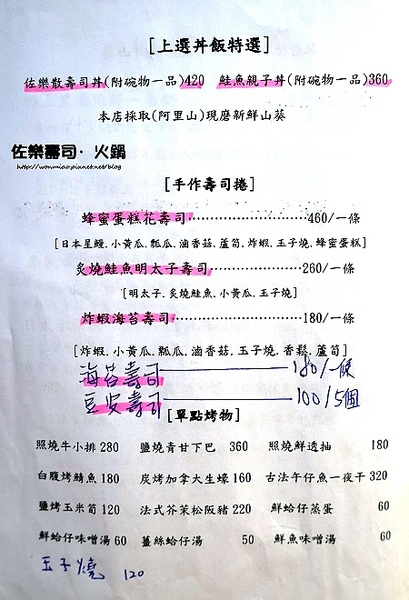 [上選丼飯特選]
佐樂散壽司丼(附碗物一品)420 鮭魚親子丼(附碗物一品)360
本店採取(阿里山)現磨新鮮山葵
佐樂壽司·火鍋
http://wonmiao.pixnet.net/blog
[手作壽司捲]
蜂蜜蛋糕花壽司··················460/一條
[日本星鰻.小黃瓜.瓢瓜.滷香菇.蘆筍.炸蝦.玉子燒.蜂蜜蛋糕]
炙燒鮭魚明太子壽司··············260/一條
[明太子.炙燒鮭魚.小黃瓜.玉子燒]
炸蝦海苔壽司····················180/一條
[炸蝦.小黃瓜.瓢瓜.滷香菇.玉子燒.香鬆.蘆筍]
海苔壽司 180/一條
豆皮壽司 100/5個
[單點烤物]
照燒牛小排 280 鹽燒青甘下巴 360 照燒鮮透抽 180
白腹烤鯖魚 180 炭烤加拿大生蠔 160 古法午仔魚一夜干 320
鹽烤玉米筍 120 法式芥茉松阪豬 220 鮮蛤仔蒸蛋 60
鮮蛤仔味噌湯 60 薑絲蛤仔湯 50 鮮魚味噌湯 60
玉子燒 120